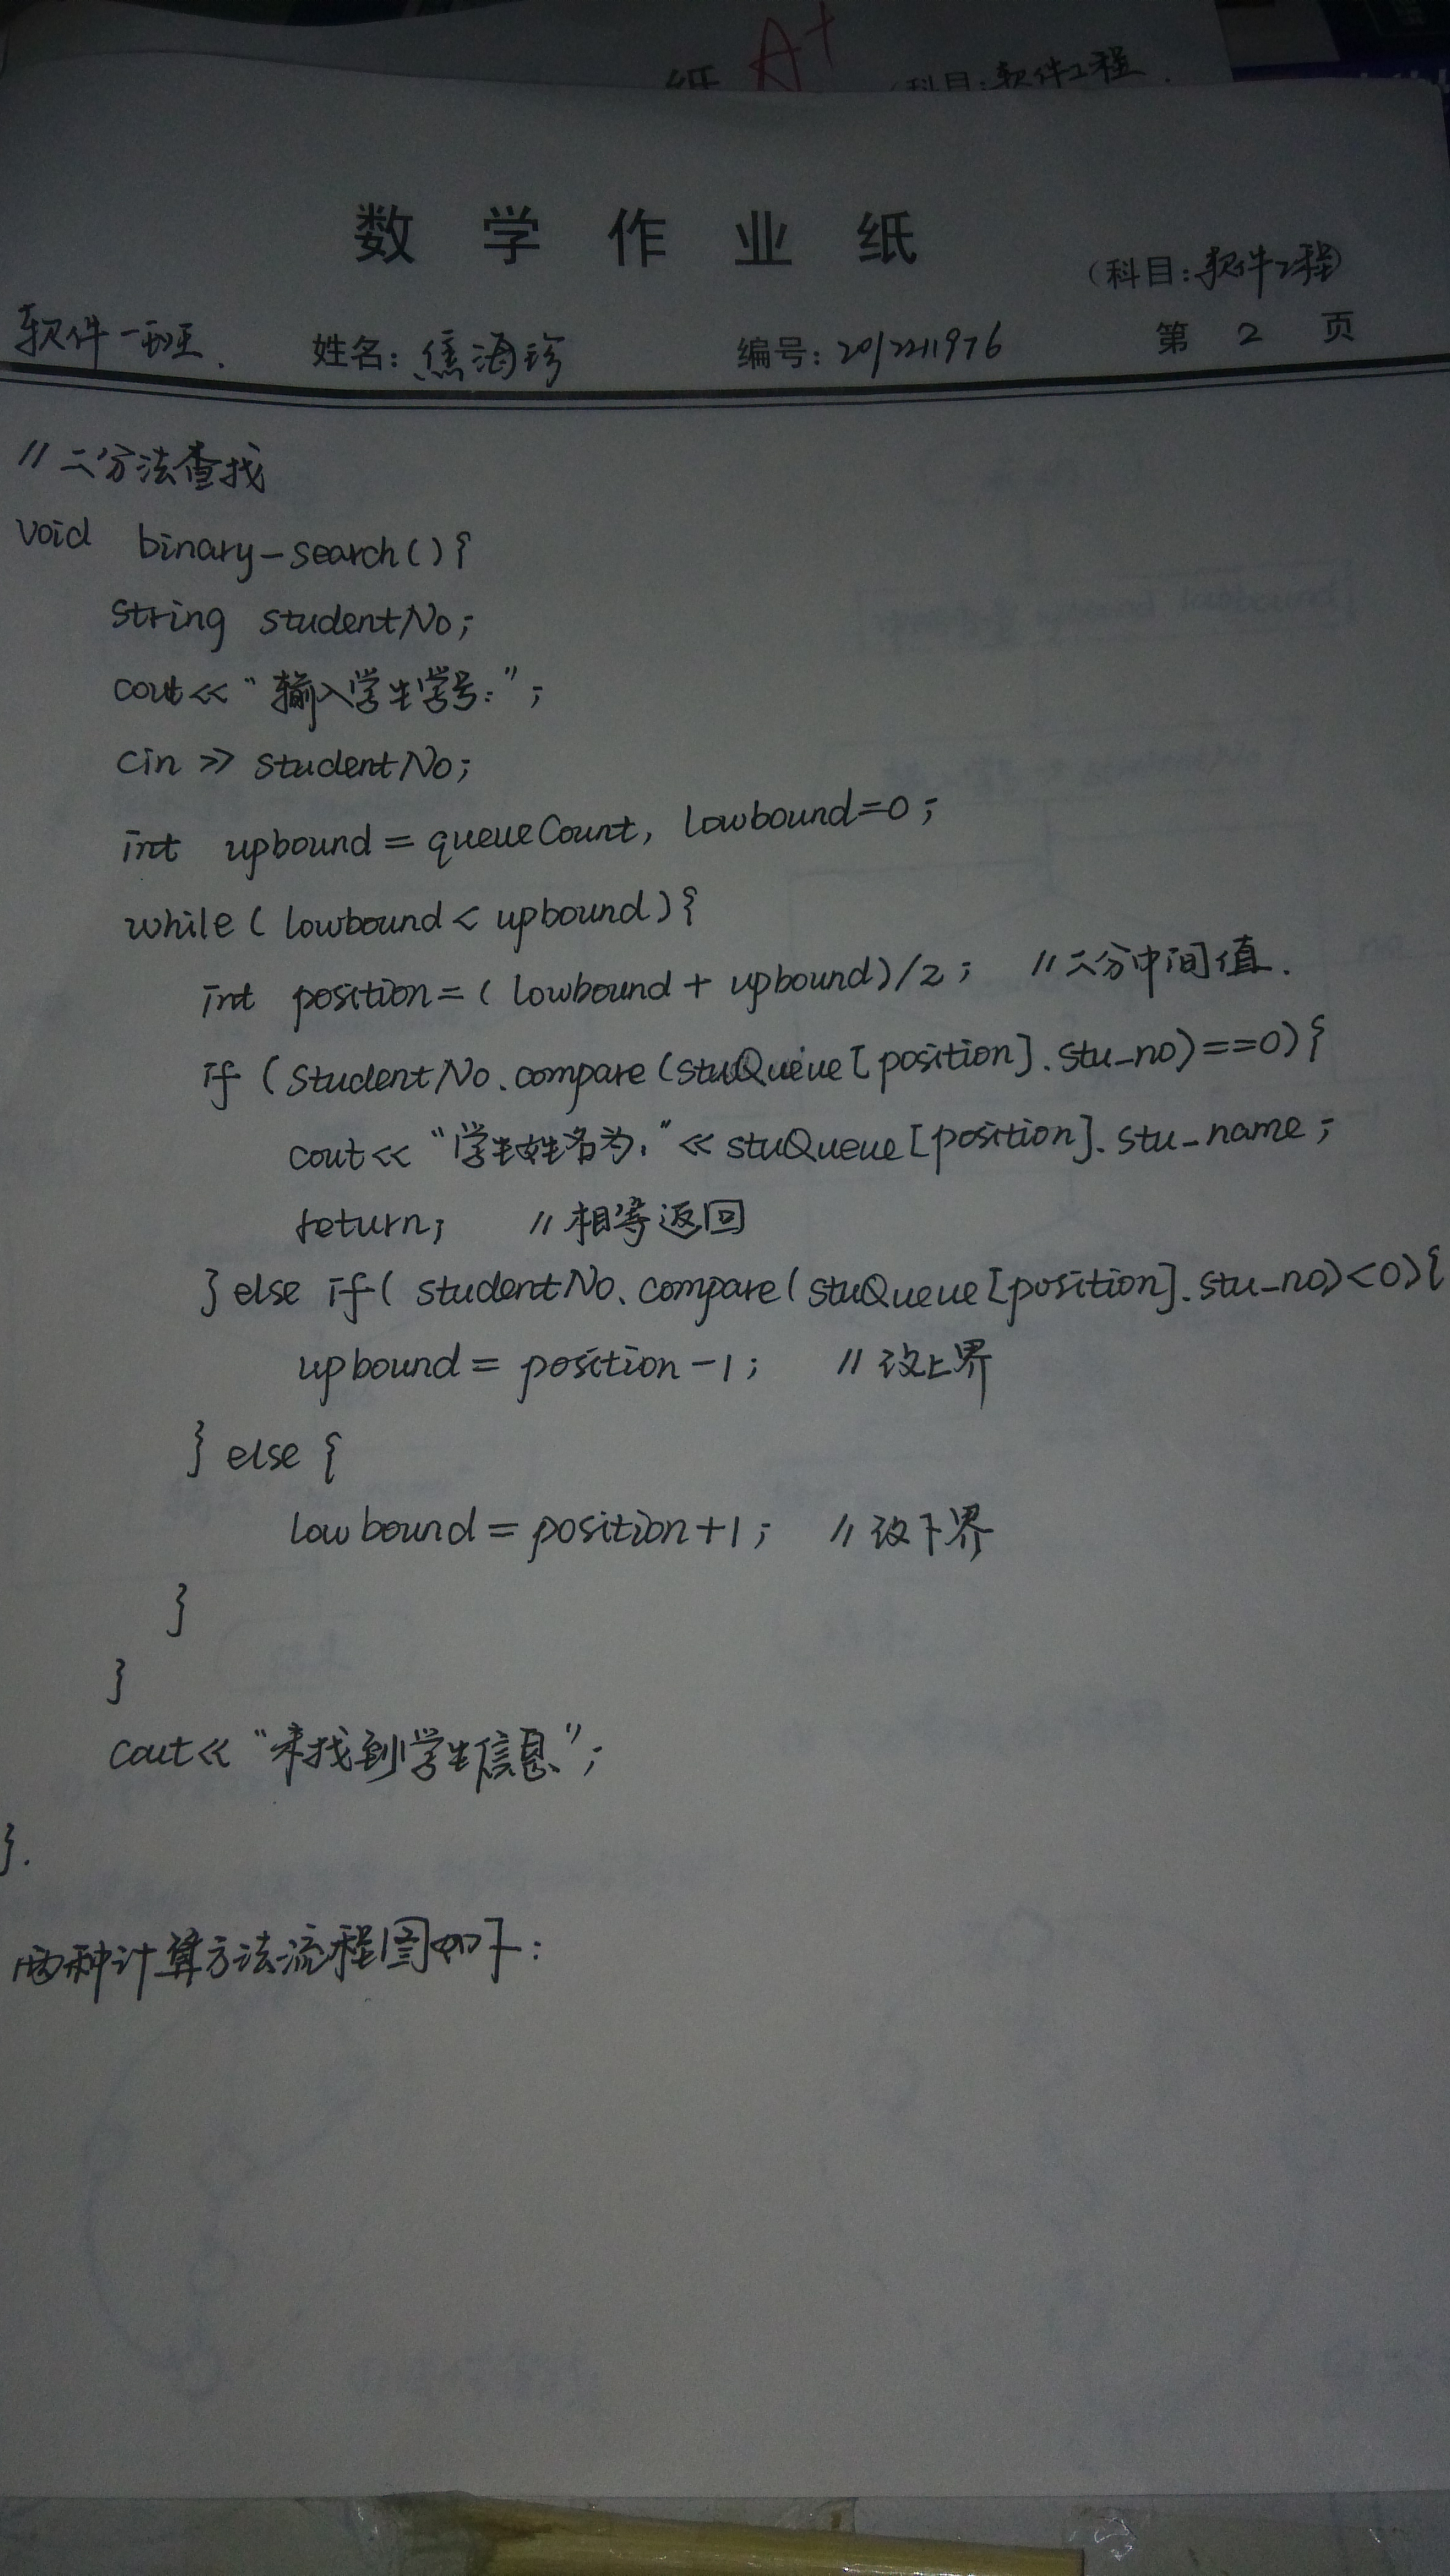 纸 A+ (科目:软件工程
数学作业纸
(科目:软件工程)
软件一班. 姓名:焦海珍 编号:2012211976 第 2 页
//二分法查找
void binary-search(){
string studentNo;
cout<<"输入学生学号:";
cin >> studentNo;
int upbound = queueCount, lowbound=0;
while( lowbound < upbound){
int position=( lowbound + upbound)/2; //二分中间值.
if (studentNo.compare(stuQueue[position].stu_no)==0){
cout<< "学生姓名为:" << stuQueue[position].stu_name;
return; //相等返回
} else if( studentNo.compare(stuQueue[position].stu_no)<0){
upbound = position-1; //改上界
} else {
lowbound = position+1; //改下界
}
}
cout<< "未找到学生信息";
}.
两种计算方法流程图如下: